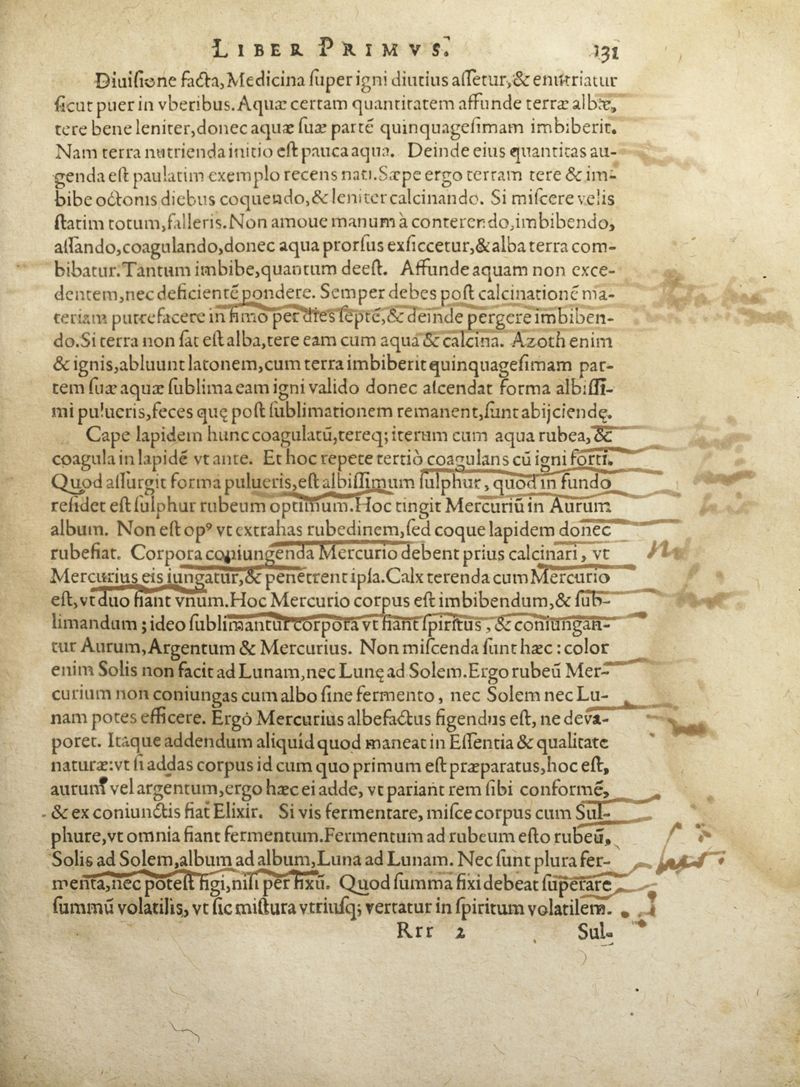 LIBER PRIMVS. 131
Diuiſione facta, Medicina ſuper igni diutius aſſetur, & enutriatur
ſicut puer in vberibus. Aquæ certam quantitatem affunde terræ albæ,
tere bene leniter, donec aquæ ſuæ partē quinquageſimam imbiberit.
Nam terra nutrienda initio eſt pauca aqua. Deinde eius quantitas au-
genda eſt paulatim exemplo recens nati. Sæpe ergo terram tere & im-
bibe octonis diebus coquendo, & leniter calcinando. Si miſcere velis
ſtatim totum, falleris. Non amoue manum à conterendo, imbibendo,
aſſando, coagulando, donec aqua prorſus exſiccetur, & alba terra com-
bibatur. Tantum imbibe, quantum deeſt. Affunde aquam non exce-
dentem, nec deficientē pondere. Semper debes poſt calcinationē ma-
teriam putrefacere in fimo per dies ſeptē, & deinde pergere imbiben-
do. Si terra non ſat eſt alba, tere eam cum aqua & calcina. Azoth enim
& ignis, abluunt latonem, cum terra imbiberit quinquageſimam par-
tem ſuæ aquæ ſublima eam igni valido donec aſcendat forma albiſſi-
mi pulueris, feces quę poſt ſublimationem remanent, ſunt abijciendę.
Cape lapidem hunc coagulatū, tereq; iterum cum aqua rubea, &
coagula in lapidē vt ante. Et hoc repete tertiò coagulans cū igni forti.
Quod aſſurgit forma pulueris, eſt albiſſimum ſulphur, quod in fundo
reſidet eſt ſulphur rubeum optimum. Hoc tingit Mercuriū in Aurum
album. Non eſt opꝰ vt extrahas rubedinem, ſed coque lapidem donec
rubefiat. Corpora coniungenda Mercurio debent prius calcinari, vt
Mercurius eis iungatur, & penetrent ipſa. Calx terenda cum Mercurio
eſt, vt duo fiant vnum. Hoc Mercurio corpus eſt imbibendum, & ſub-
limandum; ideo ſublimantur corpora vt fiant ſpiritus, & coniungan-
tur Aurum, Argentum & Mercurius. Non miſcenda ſunt hæc: color
enim Solis non facit ad Lunam, nec Lunę ad Solem. Ergo rubeū Mer-
curium non coniungas cum albo ſine fermento, nec Solem nec Lu-
nam potes efficere. Ergò Mercurius albefactus figendus eſt, ne deva-
poret. Itaque addendum aliquid quod maneat in Eſſentia & qualitate
naturæ: vt ſi addas corpus id cum quo primum eſt præparatus, hoc eſt,
aurum vel argentum, ergo hæc ei adde, vt pariant rem ſibi conformē,
& ex coniunctis fiat Elixir. Si vis fermentare, miſce corpus cum Sul-
phure, vt omnia fiant fermentum. Fermentum ad rubeum eſto rubeū,
Solis ad Solem, album ad album, Luna ad Lunam. Nec ſunt plura fer-
menta, nec poteſt figi, niſi per fixū. Quod ſumma fixi debeat ſuperare
ſummū volatilis, vt ſic miſtura vtriuſq; vertatur in ſpiritum volatilem.
Rrr 2 Sul-